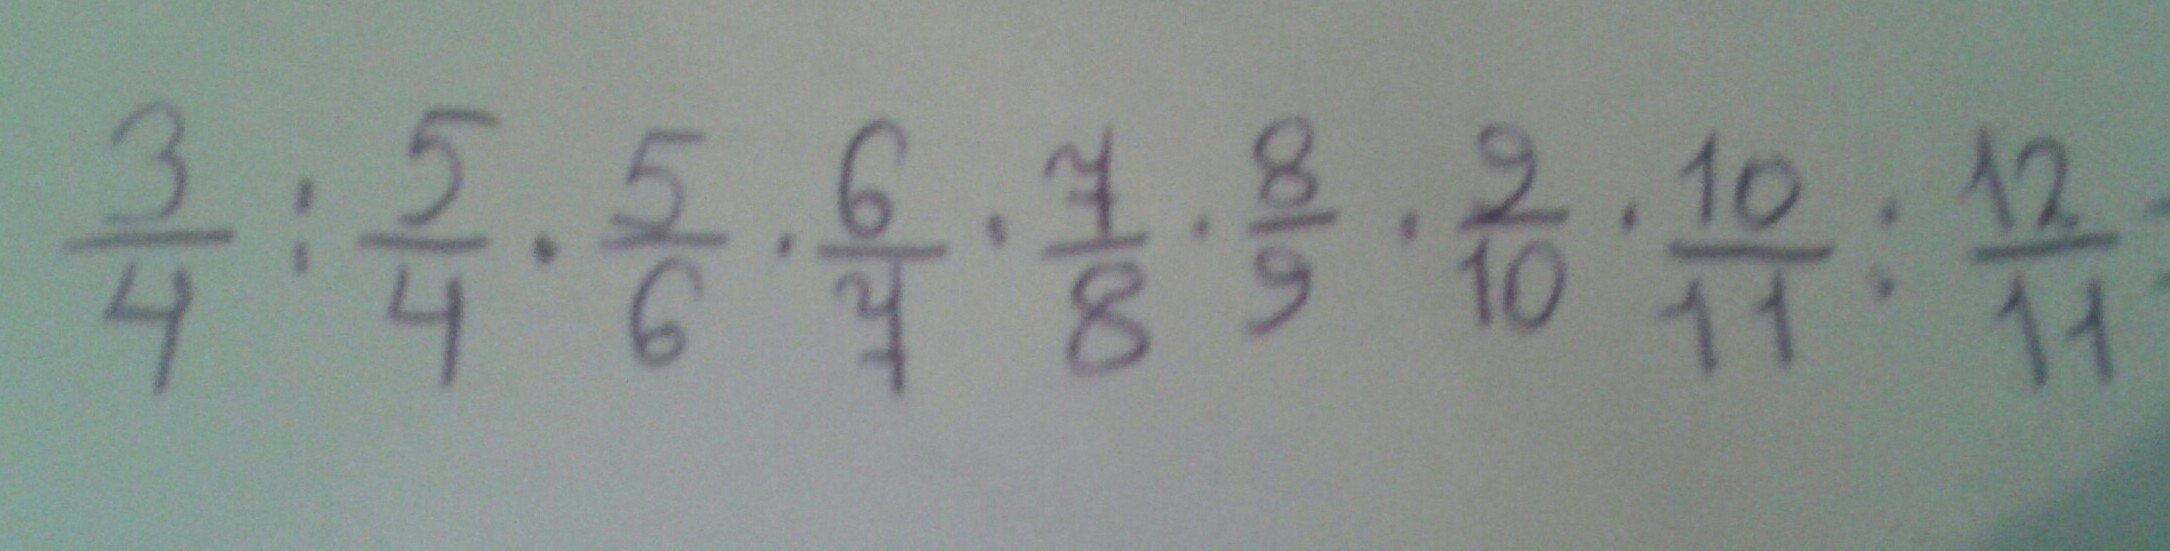 3/4 : 5/4 · 5/6 · 6/7 · 7/8 · 8/9 · 9/10 · 10/11 : 12/11 =